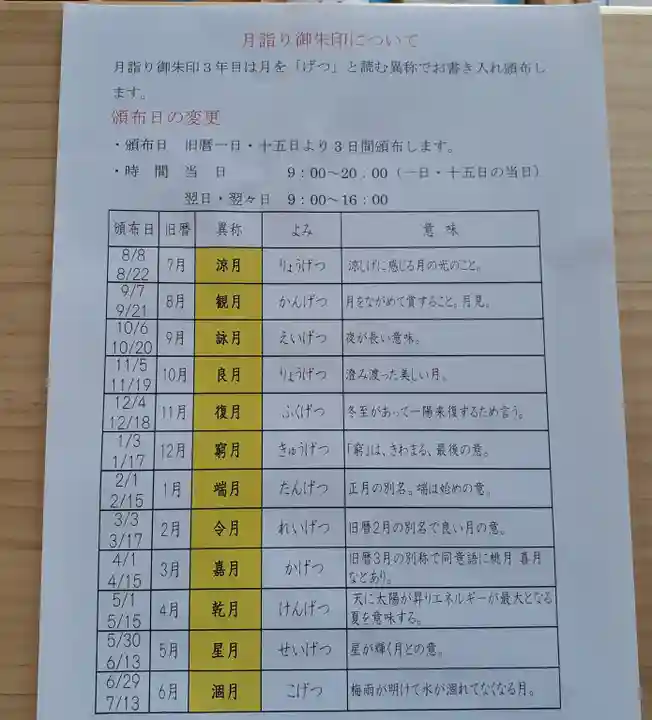 月詣り御朱印について
月詣り御朱印３年目は月を「げつ」と読む異称でお書き入れ頒布し
ます。
頒布日の変更
・頒布日　旧暦一日・十五日より３日間頒布します。
・時　間　当　日　　　９：００～２０．００（一日・十五日の当日）
翌日・翌々日　９：００～１６：００
頒布日 旧暦 異称 よみ 意 味
8/8 8/22 7月 涼月 りょうげつ 涼しげに感じる月の光のこと。
9/7 9/21 8月 観月 かんげつ 月をながめて賞すること。月見。
10/6 10/20 9月 詠月 えいげつ 夜が長い意味。
11/5 11/19 10月 良月 りょうげつ 澄み渡った美しい月。
12/4 12/18 11月 復月 ふくげつ 冬至があって一陽来復するため言う。
1/3 1/17 12月 窮月 きゅうげつ 「窮」は、きわまる、最後の意。
2/1 2/15 1月 端月 たんげつ 正月の別名。端は始めの意。
3/3 3/17 2月 令月 れいげつ 旧暦2月の別名で良い月の意。
4/1 4/15 3月 嘉月 かげつ 旧暦3月の別称で同意語に桃月 喜月
などあり。
5/1 5/15 4月 乾月 けんげつ 天に太陽が昇りエネルギーが最大となる
夏を意味する。
5/30 6/13 5月 星月 せいげつ 星が輝く月との意。
6/29 7/13 6月 涸月 こげつ 梅雨が明けて水が涸れてなくなる月。